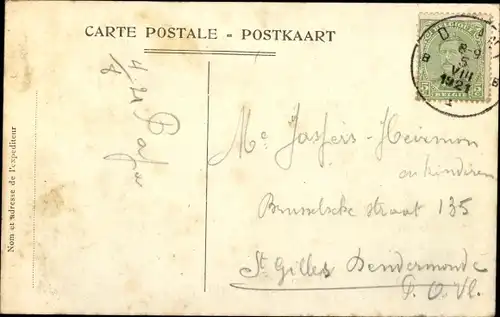 CARTE POSTALE - POSTKAART
Nom et adresse de l'expéditeur
4/8 21
BELGIQUE
5 BELGIE 5
D
8-9
B 5 B
VIII
1921
Mr Jaspers-Heirmon
en kinderen
Brusselsche straat 135
St Gilles Dendermonde
P. O. Vl.